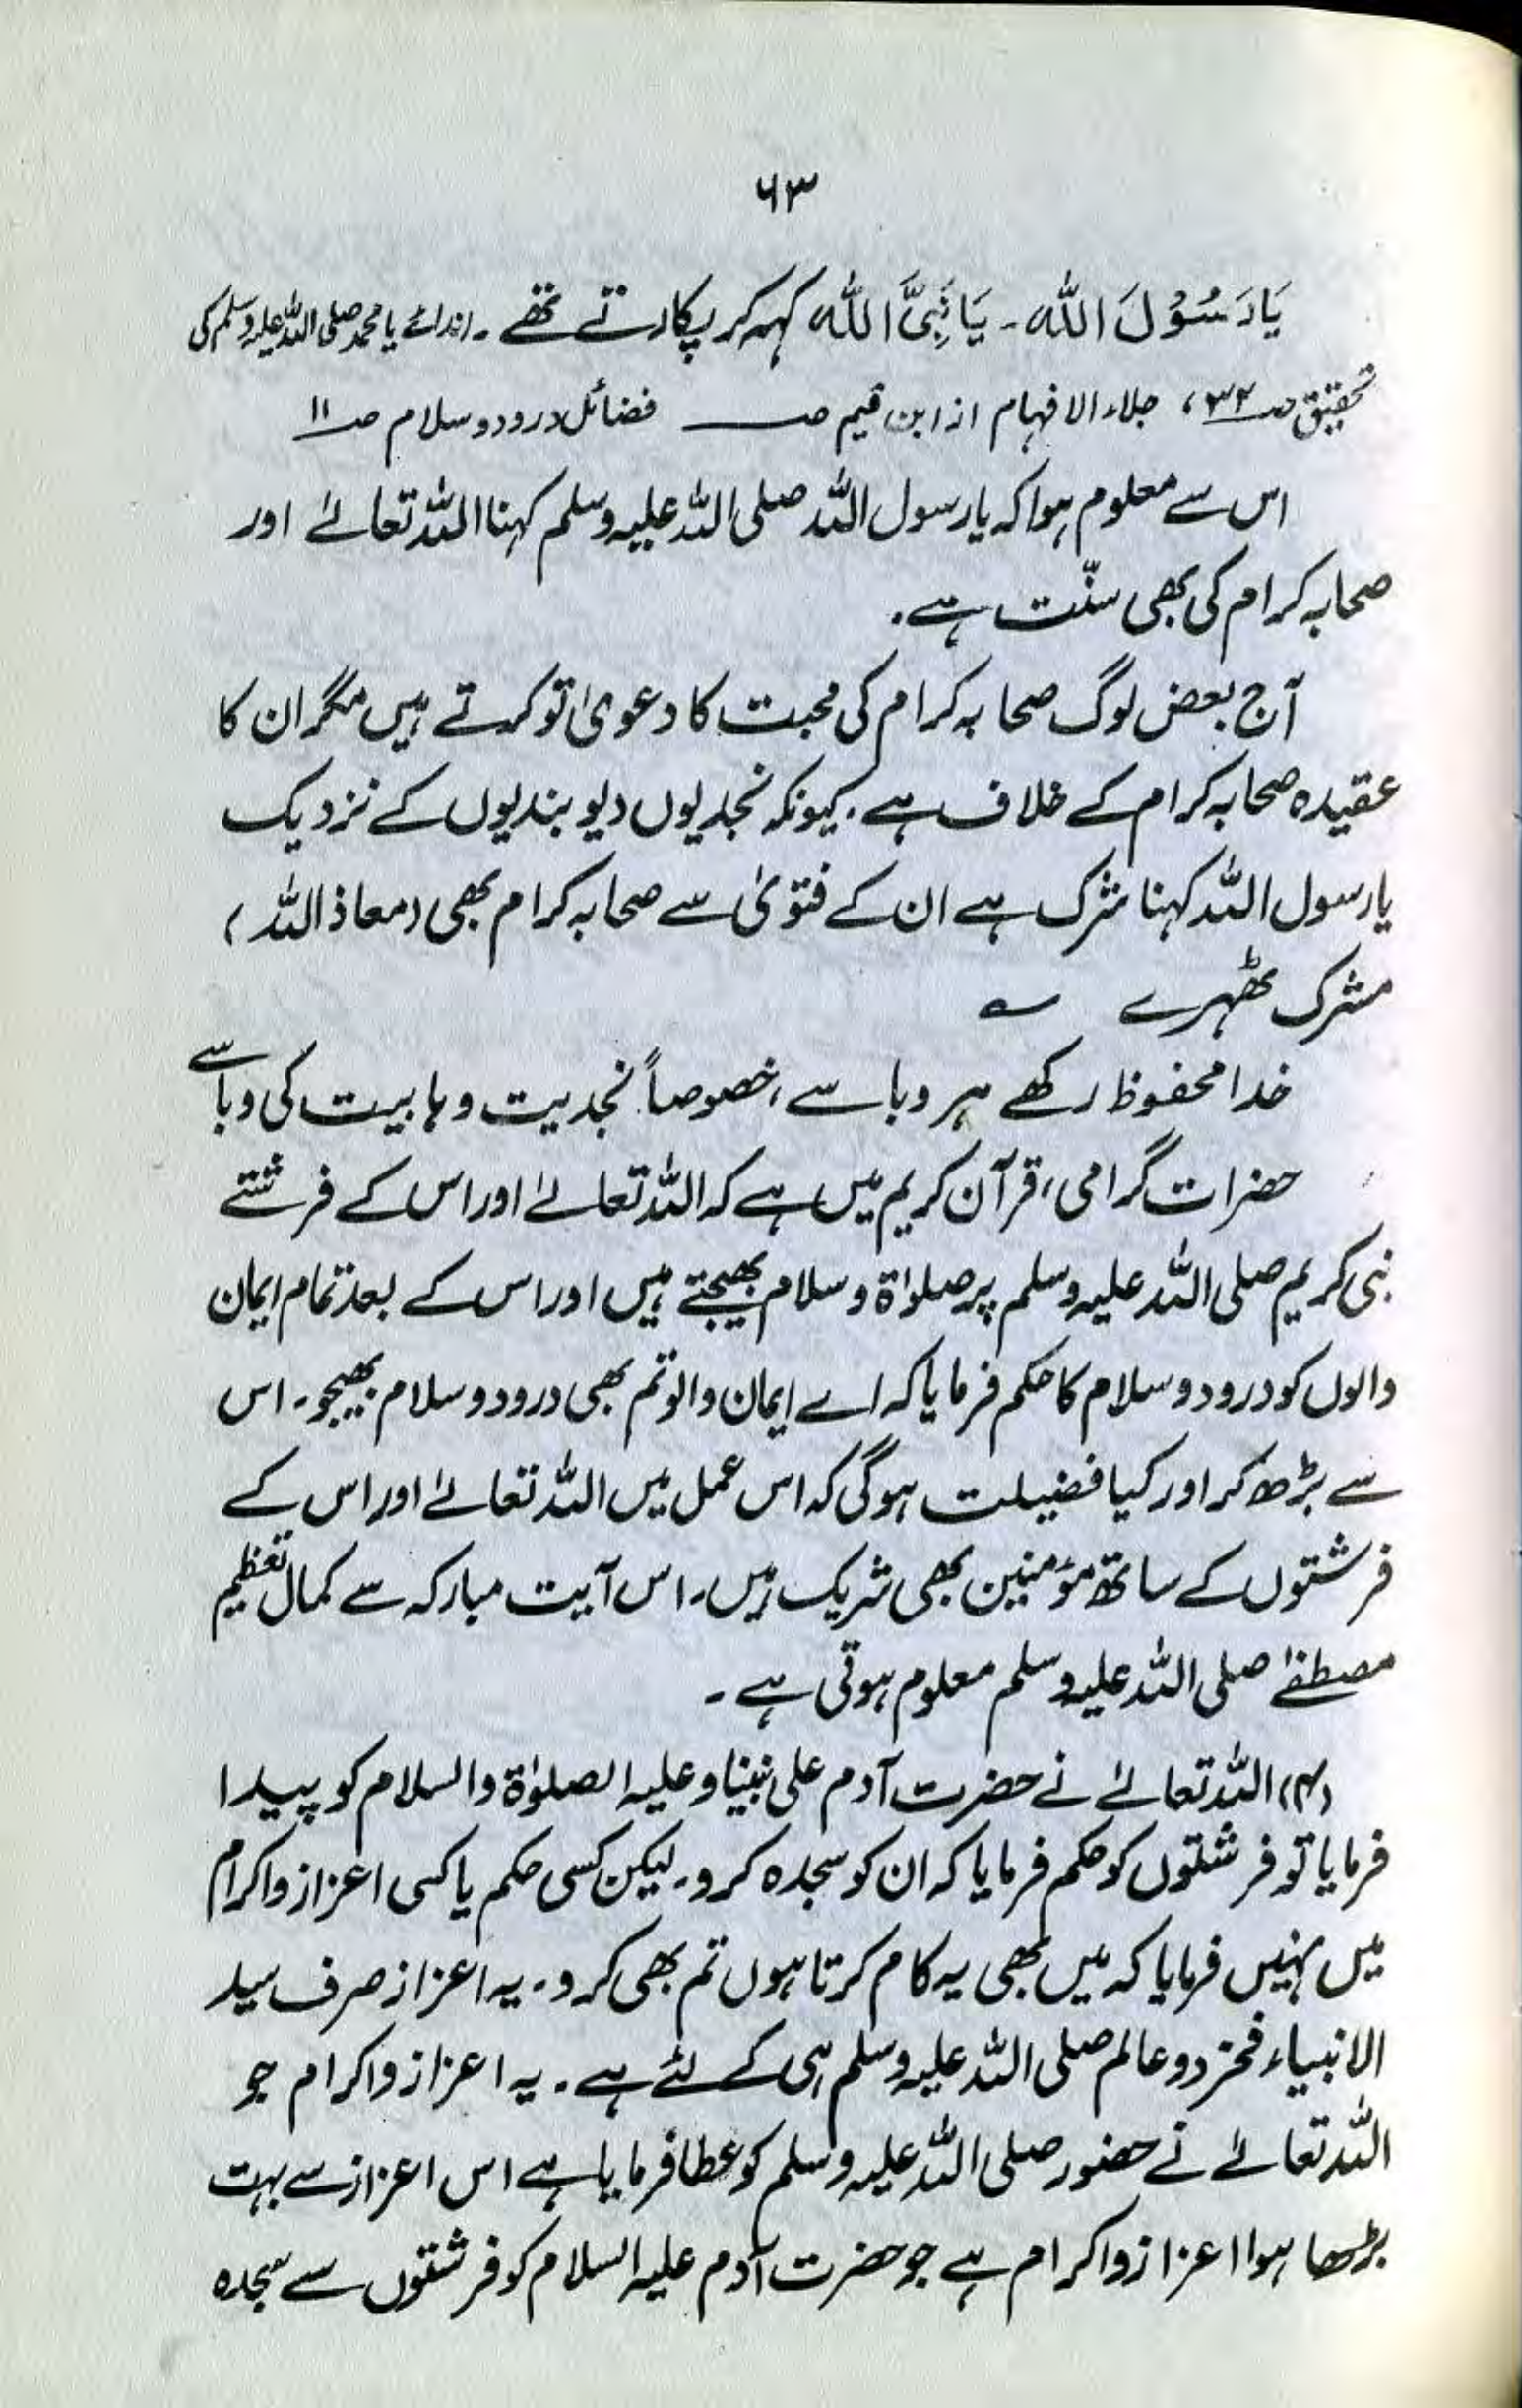 ۶۳
یَا رَسُوْلَ اللّٰہ۔ یَا نَبِیَّ اللّٰہ کہہ کر پکارتے تھے۔ (ندائے یا محمد صلی اللہ علیہ وسلم کی
تحقیق صـ ۳۲، جلاء الافہام از ابن قیم صـ ــــ فضائل درود و سلام صـ ۱۱
اس سے معلوم ہوا کہ یا رسول اللہ صلی اللہ علیہ وسلم کہنا اللہ تعالےٰ اور
صحابہ کرام کی بھی سنّت ہے۔
آج بعض لوگ صحابہ کرام کی محبت کا دعویٰ تو کرتے ہیں مگر ان کا
عقیدہ صحابہ کرام کے خلاف ہے۔ کیونکہ نجدیوں دیوبندیوں کے نزدیک
یا رسول اللہ کہنا شرک ہے ان کے فتویٰ سے صحابہ کرام بھی (معاذ اللہ)
مشرک ٹھہرے ؎
خدا محفوظ رکھے ہر وبا سے، خصوصاً نجدیت وہابیت کی وبا سے
حضرات گرامی، قرآن کریم میں ہے کہ اللہ تعالےٰ اور اس کے فرشتے
نبی کریم صلی اللہ علیہ وسلم پر صلوٰۃ و سلام بھیجتے ہیں اور اس کے بعد تمام ایمان
والوں کو درود و سلام کا حکم فرمایا کہ اے ایمان والو تم بھی درود و سلام بھیجو۔ اس
سے بڑھ کر اور کیا فضیلت ہو گی کہ اس عمل میں اللہ تعالےٰ اور اس کے
فرشتوں کے ساتھ مؤمنین بھی شریک ہیں۔ اس آیت مبارکہ سے کمال تعظیم
مصطفےٰ صلی اللہ علیہ وسلم معلوم ہوتی ہے۔
(۴) اللہ تعالےٰ نے حضرت آدم علی نبینا و علیہ الصلوٰۃ والسلام کو پیدا
فرمایا تو فرشتوں کو حکم فرمایا کہ ان کو سجدہ کرو۔ لیکن کسی حکم یا کسی اعزاز و اکرام
میں نہیں فرمایا کہ میں بھی یہ کام کرتا ہوں تم بھی کرو۔ یہ اعزاز صرف سید
الانبیاء فخر دو عالم صلی اللہ علیہ وسلم ہی کے لئے ہے۔ یہ اعزاز و اکرام جو
اللہ تعالےٰ نے حضور صلی اللہ علیہ وسلم کو عطا فرمایا ہے اس اعزاز سے بہت
بڑھا ہوا اعزاز و اکرام ہے جو حضرت آدم علیہ السلام کو فرشتوں سے سجدہ